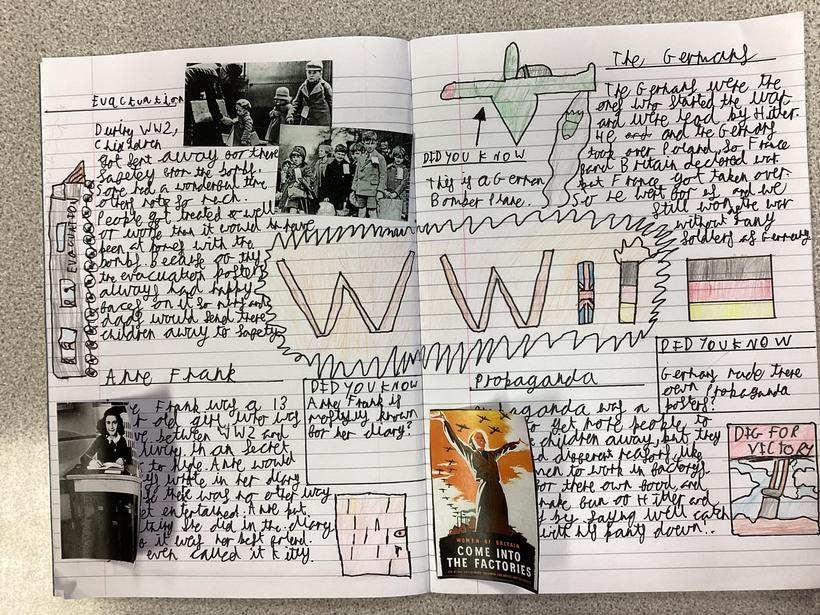 Evactuation
During WW2,
Children
got sent away gor there
Sagety grom the bombs.
Some had a wonderful time
others note so much.
People got treated as well
or worse than it would to have
been at homes with the
bombs. Because og thy
the evacuation posters
allways had happy
gaces on it so
dads would send there
children away to sagety
EVACUATION
The Germans
The Germans were the
ones who started the war
and were lead by Hitler.
He and and the Germans
took over Poland, So France
and Britain declared war.
but France got taken over.
So we went gor as and we
still won the war
without
Soldiers as Germany
DID YOU KNOW
This is a German
Bomber Plane.
WWII
Anne Frank
Frank was a 13
old girl who was
between WW2 and
living in an secret
to hide. Anne would
write in her diary
there was no other way
get entertained. Anne put
she did in the diary
it was her best griend.
even called it kitty.
DID YOU KNOW
Anne Frank is
mostly known
gor her diary?
Propaganda
was a
to get more people to
children away, but they
digerent reasons, like
to work in gactorys
gor there own good, and
gun og Hitler and
by saying we'll catch
with his panty down!.
DID YOU KNOW
Germany made there
own Propaganda
posters?
DIG FOR
VICTORY
WOMEN OF BRITAIN
COME INTO
THE FACTORIES